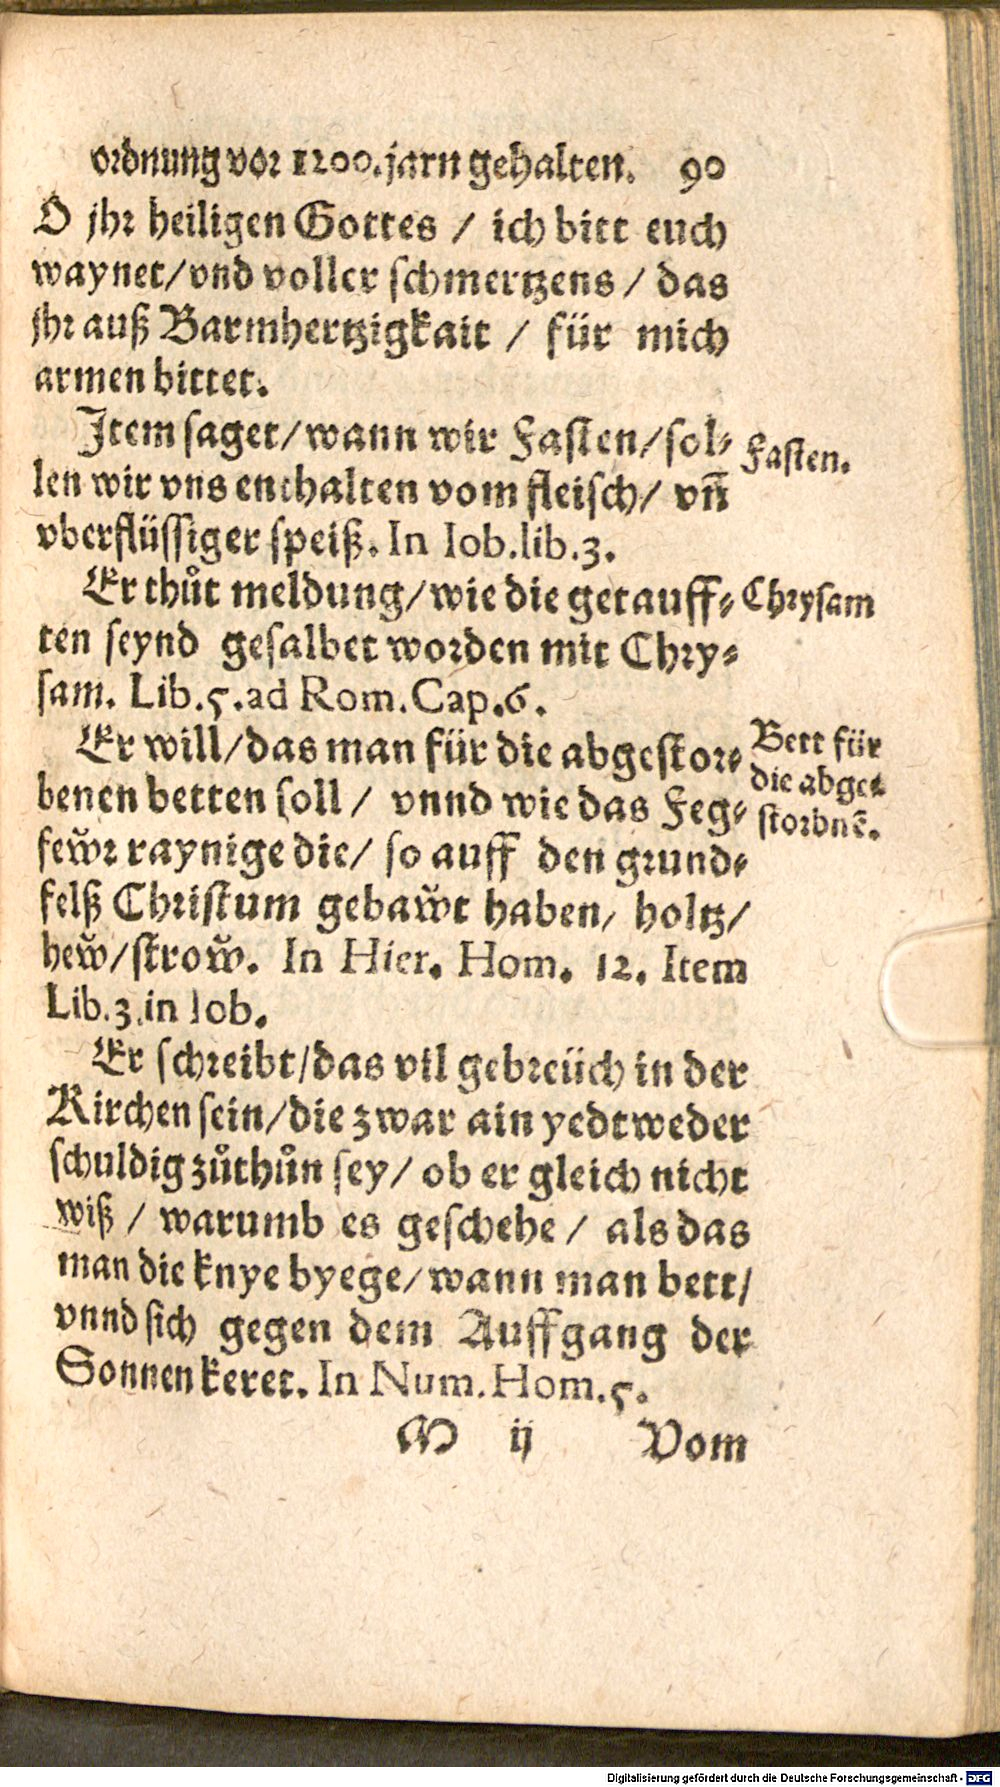 ordnung vor 1200. jarn gehalten. 90
O jhr heiligen Gottes / ich bitt euch
waynet / vnd voller schmertzens / das
jhr auß Barmhertzigkait / für mich
armen bittet.
Item saget / wann wir Fasten / sol-
Fasten.
len wir vns enthalten vom fleisch / vñ
vberflüssiger speiß. In Iob. lib. 3.
Er thůt meldung / wie die getauff-
Chrysam
ten seynd gesalbet worden mit Chry-
sam. Lib. 5. ad Rom. Cap. 6.
Er will / das man für die abgestor-
Bett für
die abge-
storbnẽ.
benen betten soll / vnnd wie das Feg-
fewͤr raynige die / so auff den grund-
felß Christum gebawͤt haben, holtz /
hewͤ / strowͤ. In Hier. Hom. 12. Item
Lib. 3. in Iob.
Er schreibt / das vil gebreüch in der
Kirchen sein / die zwar ain yedtweder
schuldig zůthůn sey / ob er gleich nicht
wiß / warumb es geschehe / als das
man die knye byege / wann man bett /
vnnd sich gegen dem Auffgang der
Sonnen keret. In Num. Hom. 5.
M ij Vom
Digitalisierung gefördert durch die Deutsche Forschungsgemeinschaft - DFG